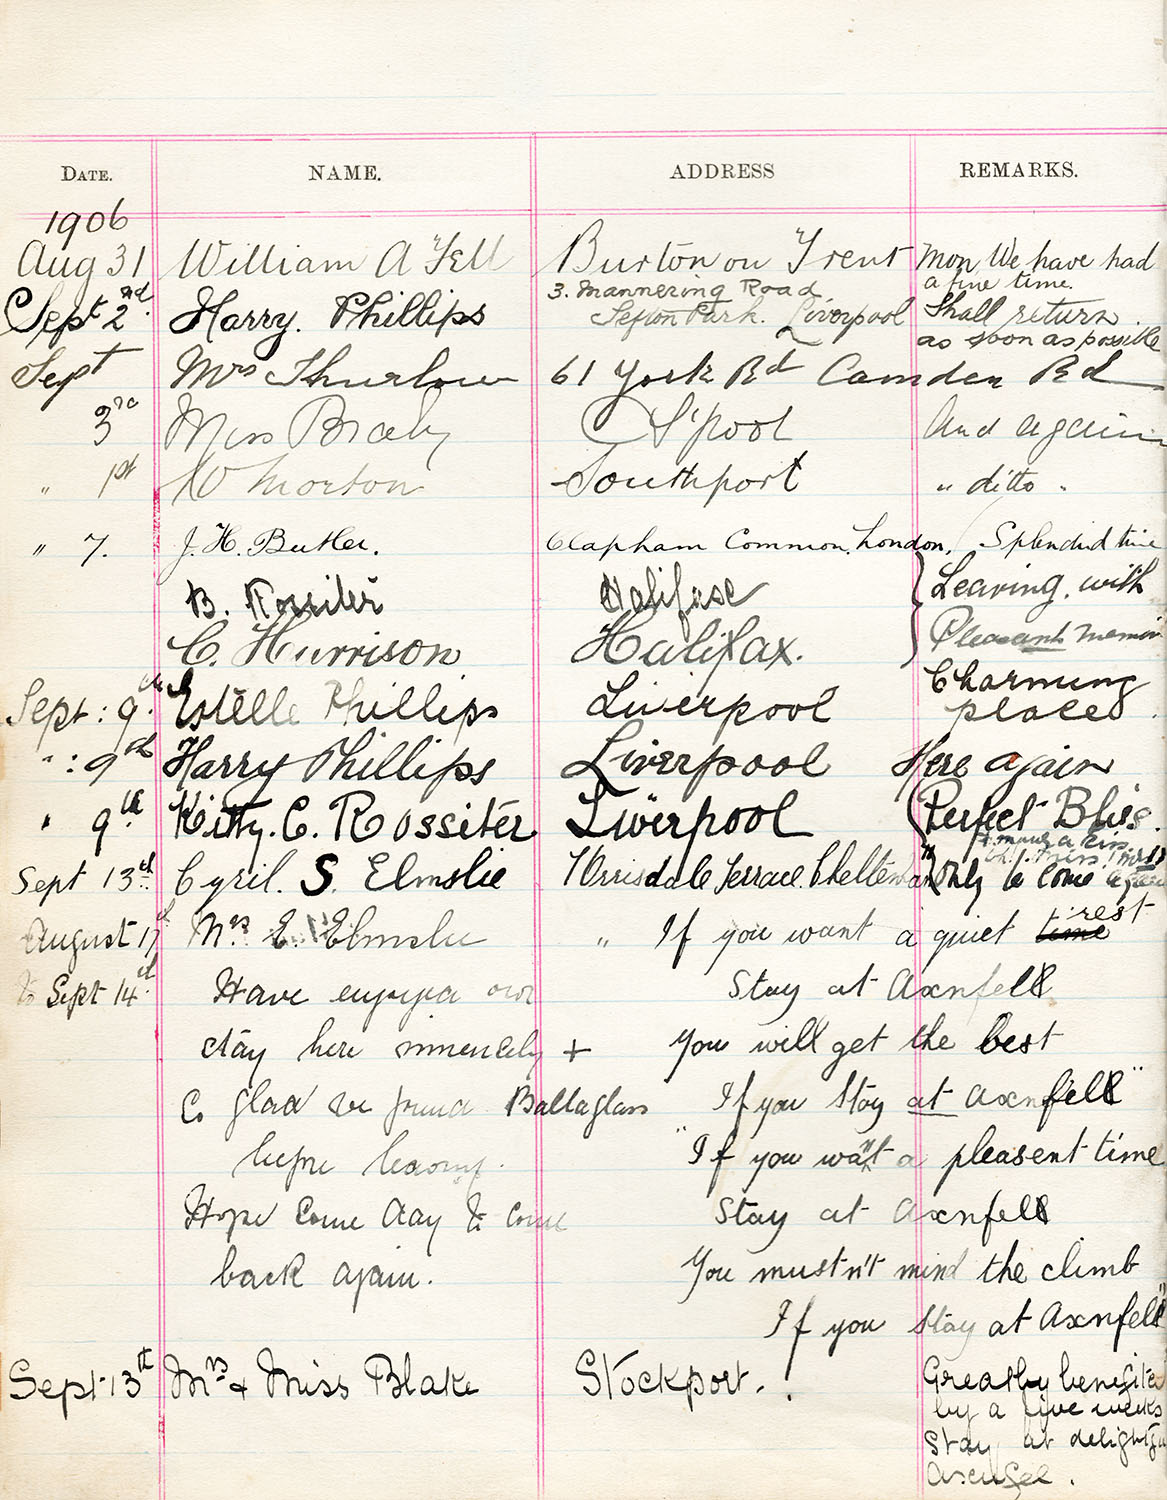 DATE. NAME. ADDRESS REMARKS.
1906
Aug 31 William A Fell Burton on Trent Mon We have had
a fine time.
Sept 2nd. Harry. Phillips 3. Mannering Road,
Sefton Park. Liverpool Shall return.
as soon as possible
Sept Mrs Thurlow 61 York Rd Camden Rd
3rd Miss S'pool And again
" 1st W Morton Southport " ditto "
" 7. J. H. Butler. Clapham Common, London, Splendid time
B. Rossiter Halifax Leaving with
C. Harrison Halifax. Pleasant
Sept: 9th. Estelle Phillips Liverpool Charming
place
" : 9th Harry Phillips Liverpool Here again
" 9th Kitty. C. Rossiter Liverpool Perfect Bliss.
a kiss
Miss
Sept 13th. Cyril. S. Elmslie Terrace. only to come again
August 17th Mrs E. Elmslie " If you want a quiet time rest
to Sept 14th. Have enjoyed our Stay at Axnfell
stay here immensely + You will get the best
so glad we found Ballaglass If you stay at Axnfell"
before leaving. "If you want a pleasent time
Hope some day to come Stay at Axnfell
back again. You mustn't mind the climb
If you stay at Axnfell"
Sept 13th Mrs + Miss Blake Stockport. ! Greatly
by a five weeks
stay at